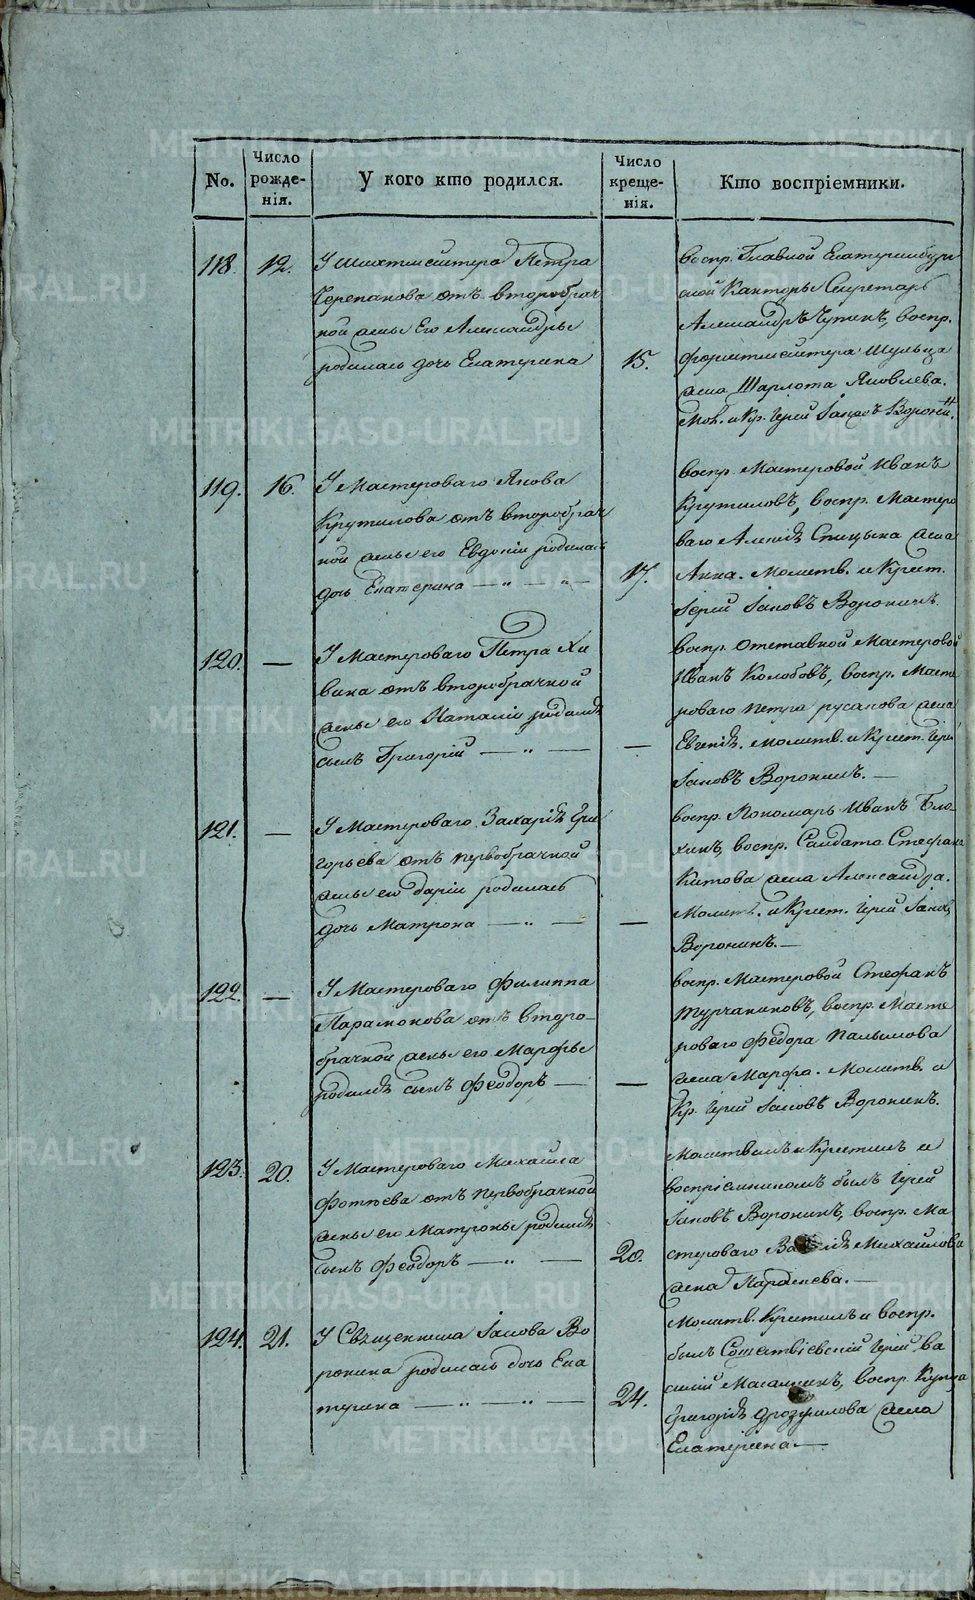 No.
Число рожде-нія.
У кого кто родился.
Число креще-нія.
Кто воспріемники.
118. 12. У Шихтмейстера Петра
Черепанова отъ второбрач
ной жены его Александры
родилась дочь Екатерина
15.
воспр. Главной Екатеринбург
ской Канторы Секретарь
Александръ Чупинъ, воспр.
форштмейстера Шульца
жена Шарлота Яковлева.
Мол. и Кр. Іерей Іаковъ Воронин.
119. 16. У Мастероваго Якова
Крутикова отъ второбрач
ной жены его Евдокіи родилась
дочь Екатерина
17.
воспр. Мастеровой Иванъ
Крутиковъ, воспр. Мастеро
ваго Спицына жена
Анна. Молитв. и Крест.
Іерей Іаковъ Воронинъ.
120. — У Мастероваго Петра
отъ второбрачной
жены его Наталіи родился
сынъ Григорій
—
воспр. отставной Мастеровой
Иванъ Колобовъ, воспр. Масте
роваго Петра русакова жена
Евгенія. молитв. и Крест. Іерей
Іаковъ Воронинъ. —
121. — У Мастероваго Захарія Гри
горьева отъ первобрачной
жены его Даріи родилась
дочь Матрона
—
воспр. Пономарь Иванъ Бло
хинъ, воспр. Солдата Стефана
Китова жена Александра.
Молитв. и Крест. Іерей Іаковъ
Воронинъ. —
122. — У Мастероваго Филиппа
Парамонова отъ второ-
брачной жены его Марфы
родился сынъ Феодоръ —
—
воспр. Мастеровой Стефанъ
Турчаниновъ, воспр. Масте
роваго Федора
жена Марфа. Молитв. и
Кр. Іерей Іаковъ Воронинъ.
123. 20. У Мастероваго Михайла
Фотѣева отъ первобрачной
жены его Матроны родился
сынъ Феодоръ
20.
Молитвилъ и Крестилъ и
воспріемникомъ былъ Іерей
Іаковъ Воронинъ, воспр. Ма
стероваго Михайлова
жена
124. 21. У Священника Іакова Во
ронина родилась дочь Ека
терина
24.
Молитв. Крестилъ и воспр.
былъ Сошествіевскій Іерей Ва
силій воспр. Купца
Григорія жена
Екатерина —
METRIKI.GASO-URAL.RU